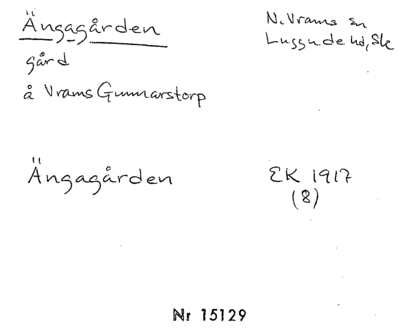 Ängagården
N. Vrams sn
Luggude hd, Sk
gård
å Vrams Gunnarstorp
Ängagården
EK 1917
(8)
Nr 15129